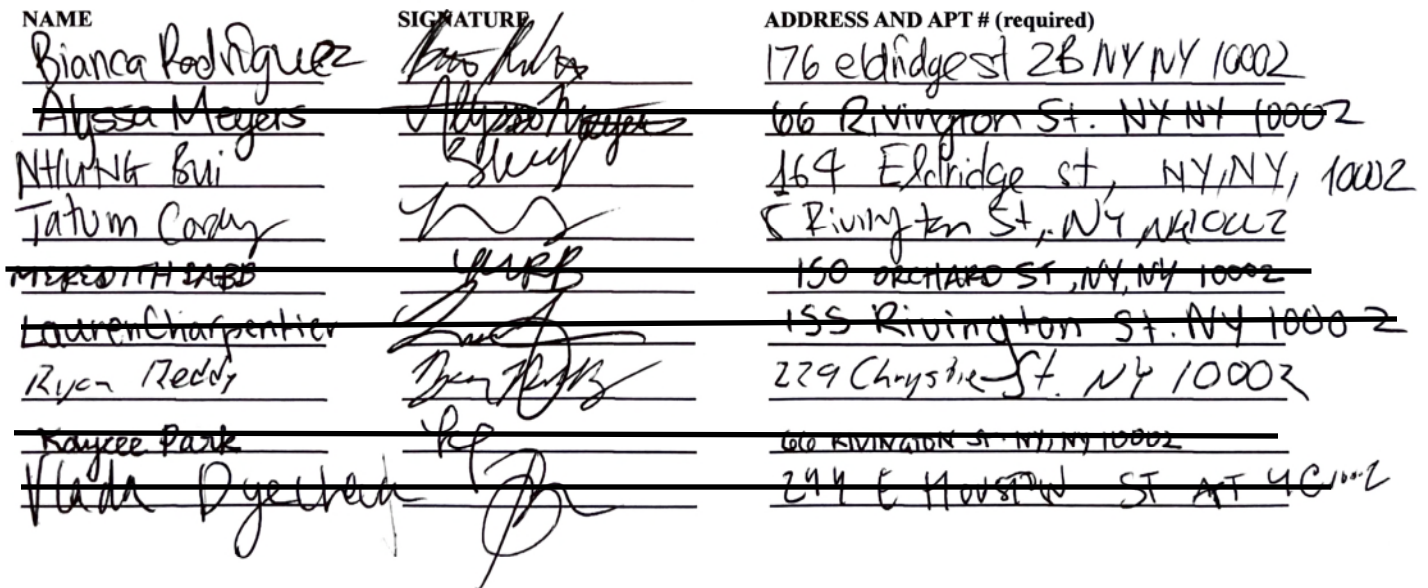 NAME SIGNATURE ADDRESS AND APT # (required)
Bianca Rodriguez 176 eldridge st 2B NY NY 10002
Alyssa Meyers Alyssa Meyers 66 Rivington St. NY NY 10002
NHUNG Bui 164 Eldridge st, NY, NY, 10002
Tatum 5 Rivington St, NY, NY 10002
MEREDITH BABB 150 ORCHARD ST, NY, NY 10002
Lauren Charpentier 155 Rivington St. NY 10002
Ryan Reddy 229 Chrystie St. NY 10002
Kaycee Park KP 66 RIVINGTON ST NY, NY 10002
Vlada 244 E HOUSTON ST APT 4C 10002